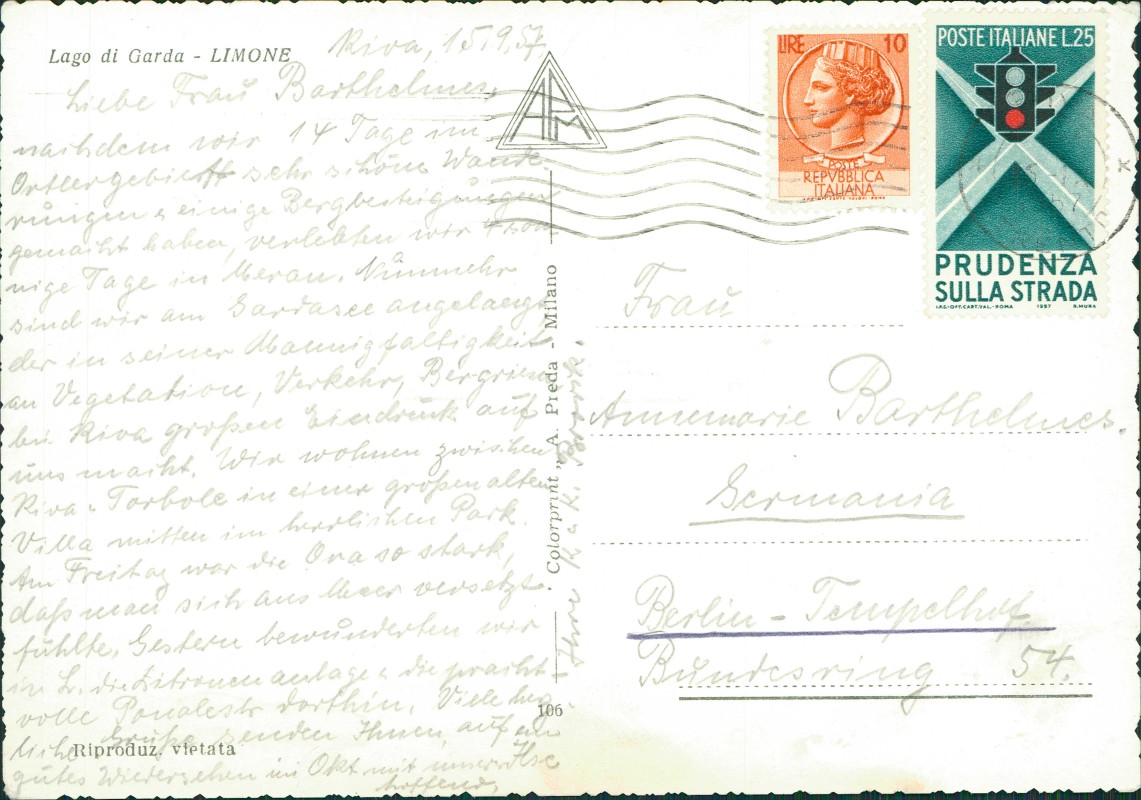 Lago di Garda - LIMONE
Riva, 15.9.57
Liebe Frau Barthelmes,
nachdem wir 14 Tage im
Ortlergebiet sehr schöne Wande-
rungen u. einige Bergbesteigungen
gemacht haben, verlebten wir son-
nige Tage in Meran. Nunmehr
sind wir am Gardasee angelangt
der in seiner Mannigfaltigkeit
an Vegetation, Verkehr, Bergriesen
bei Riva großen Eindruck auf
uns macht. Wir wohnen zwischen
Riva - Torbole in einer großen alten
Villa mitten im herrlichen Park.
Am Freitag war die Ora so stark,
daß man sich ans Meer versetzt
fühlte. Gestern bewunderten wir
in L. die Zitronenanlage u. die pracht-
volle Ponalestr. dorthin. Viele herz-
liche Grüße senden Ihnen, auf ein
gutes Wiedersehen im Okt. mit unserer Ilse
hoffend,
Ihre K. u. K.
Riproduz. vietata
APM
Colorprint „ A. Preda - Milano
106
LIRE 10
POSTE
REPVBBLICA
ITALIANA
POSTE ITALIANE L.25
PRUDENZA
SULLA STRADA
I.P.S.-OFF.CART.VAL.-ROMA 1957 R.MURA
Frau
Annemarie Barthelmes.
Germania
Berlin - Tempelhof
Bundesring 54.